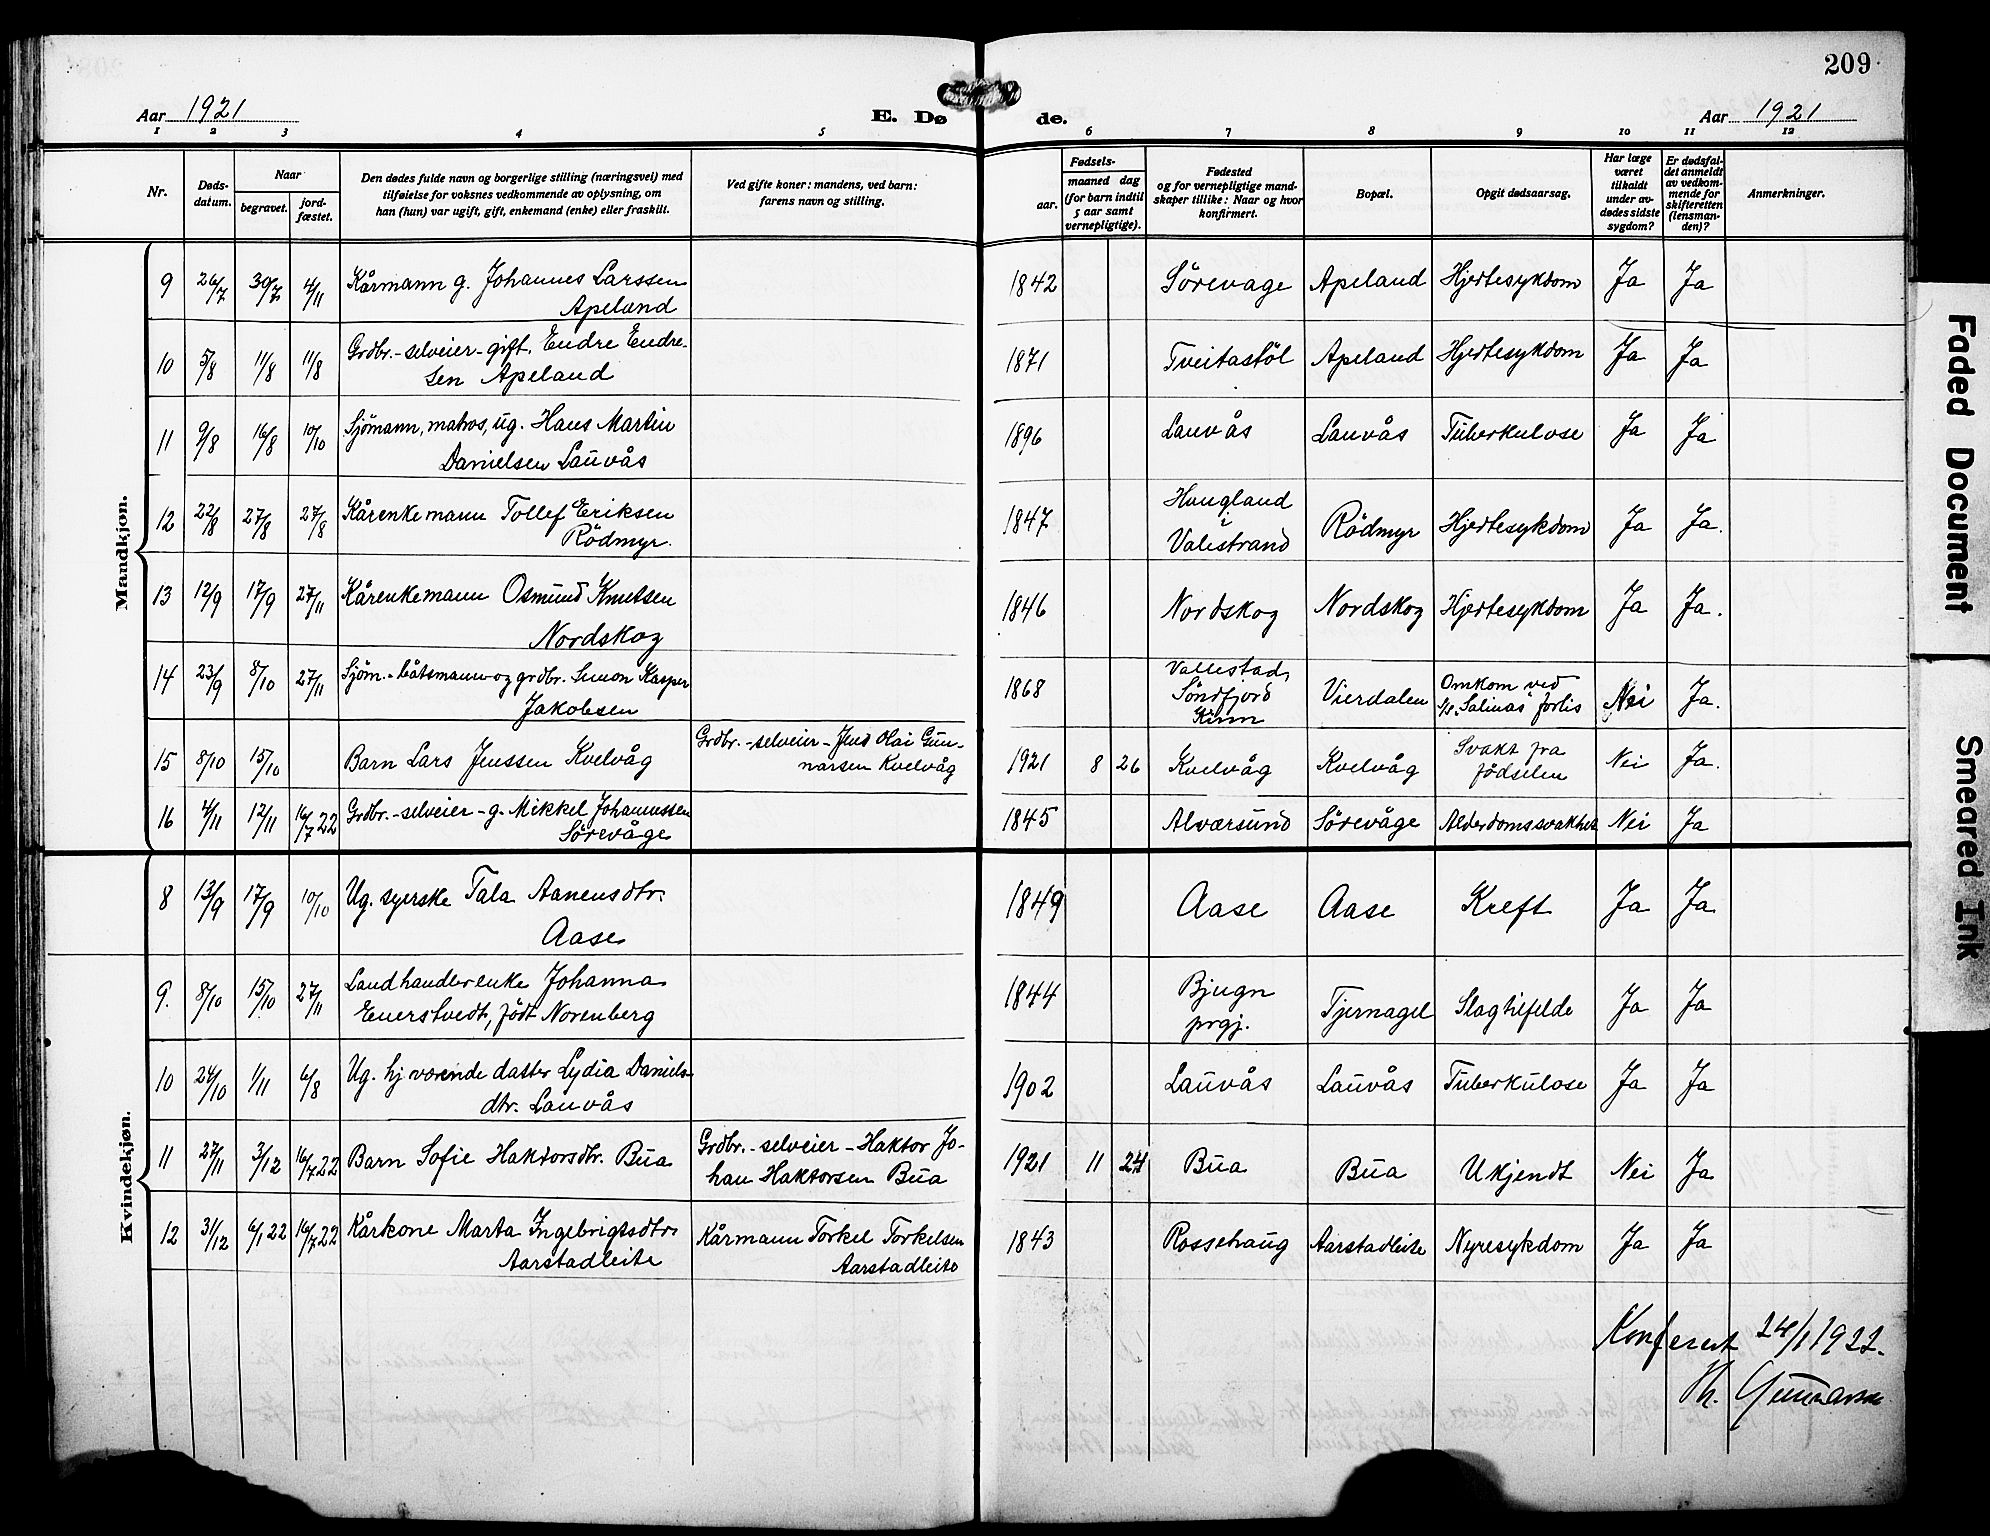 209
Aar 1921
E. Dø
de.
Aar 1921
1 2 3 4 5 6 7 8 9 10 11 12
Nr.
Døds-
datum.
Naar
begravet.
jord-
fæstet.
Den dødes fulde navn og borgerlige stilling (næringsvei) med
tilføielse for voksnes vedkommende av oplysning, om
han (hun) var ugift, gift, enkemand (enke) eller fraskilt.
Ved gifte koner: mandens, ved barn:
farens navn og stilling.
Fødsels-
aar.
maaned dag
(for barn indtil
5 aar samt
vernepligtige).
Fødested
og for vernepligtige mand-
skaper tillike: Naar og hvor
konfirmert.
Bopæl.
Opgit dødsaarsag.
Har læge
været
tilkaldt
under av-
dødes sidste
sygdom?
Er dødsfal-
det anmeldt
av vedkom-
mende for
skifteretten
(lensman-
den)?
Anmerkninger.
Mandkjøn.
9 26/7 30/7 4/11 Kårmann g. Johannes Larssen
Apeland
1842 Sörevage Apeland Hjertesykdom Ja Ja
10 5/8 11/8 11/8 Grdbr.-selveier-gift. Endre Endre-
sen Apeland
1871 Tveitastöl Apeland Hjertesykdom Ja Ja
11 9/8 16/8 10/10 Sjömann, matros, ug. Hans Martin
Danielsen Lauvås
1896 Lauvås Lauvås Tuberkulose Ja Ja
12 22/8 27/8 27/8 Kårenkemann Tollef Eriksen
Rödmyr.
1847 Haugland
i
Valestrand
Rödmyr Hjertesykdom Ja Ja.
13 12/9 17/9 27/11 Kårenkemann Osmund Knutsen
Nordskog
1846 Nordskog Nordskog Hjertesykdom Ja Ja.
14 23/9 8/10 27/11 Sjöm.-båtsmann og grdbr. Simon Kasper
Jakobsen
1868 Vallestad,
Söndfjord
Kinn
Vierdalen Omkom ved
s/s "Salinas" forlis
Nei Ja.
15 8/10 15/10 Barn Lars Jenssen Kvelvåg
Grdbr.-selveier-Jens Olai Gun-
narsen Kvelvåg
1921 8 26 Kvelvåg Kvelvåg Svakt fra
födselen
Nei Ja.
16 4/11 12/11 16/7 22 Grdbr.-selveier-g. Mikkel Johannessen
Sörevåge
1845 Alværsund Sörevåge Alderdomssvakhet Nei Ja
Kvindekjøn.
8 13/9 17/9 10/10 Ug. syerske Tala Aanensdtr.
Aase
1849 Aase Aase Kreft Ja Ja
9. 8/10 15/10 27/11 Landhandlerenke Johanna
Enerstvedt, födt Norenberg
1844 Bjugn
prgj.
Tjernagel Slagtilfelde Ja Ja
10 24/10 1/11 6/8 Ug. hj.værende datter Lydia Daniels-
dtr. Lauvås
1902 Lauvås Lauvås Tuberkulose Ja Ja
11 27/11 3/12 16/7 22 Barn Sofie Haktorsdtr. Bua
Grdbr.-selveier-Haktor Jo-
han Haktorsen Bua
1921 11 24 Bua Bua Ukjendt Nei Ja
12 31/12 6/1 22 16/7 22 Kårkone Marta Ingebrigtsdtr
Aarstadleite
Kårmann Torkel Torkelsen
Aarstadleite
1843 Rossehaug Aarstadleite Nyresykdom Ja Ja
Konferert 24/1 1922.
Th. Gunnarsen
Faded Document
Smeared Ink